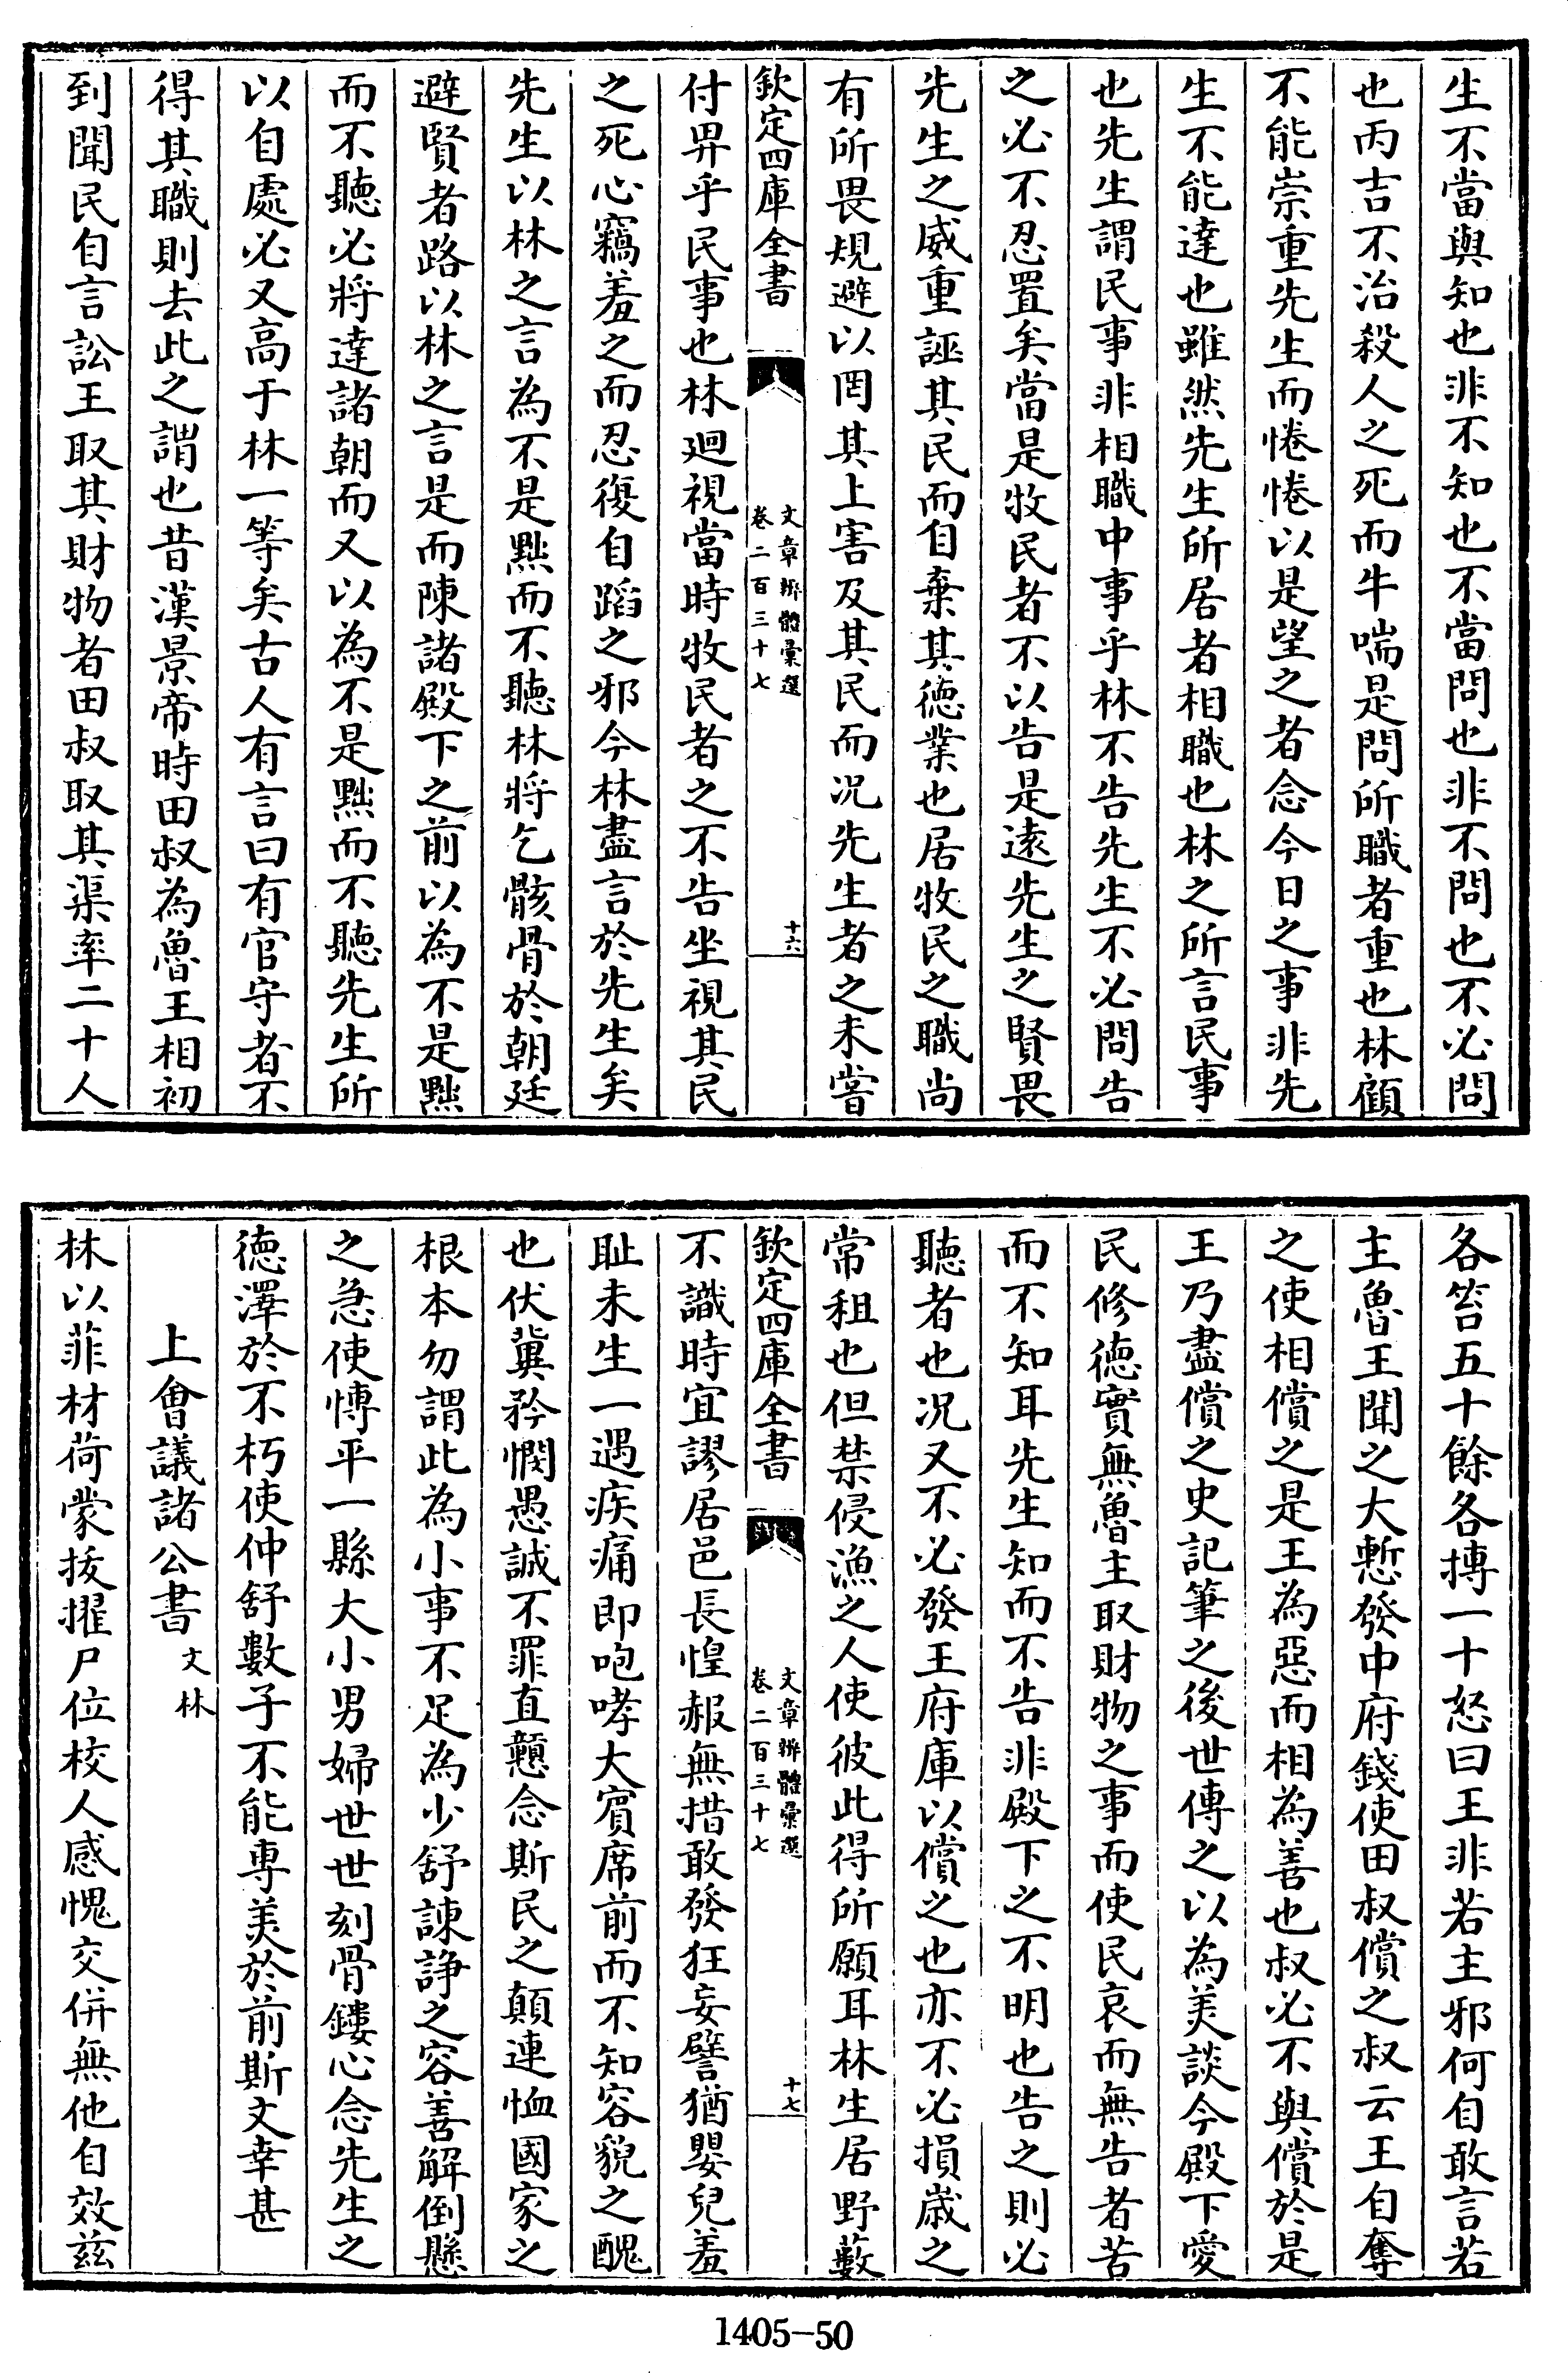 生不當與知也非不知也不當問也非不問也不必問
也丙吉不治殺人之死而牛喘是問所職者重也林顧
不能崇重先生而惓惓以是望之者念今日之事非先
生不能達也雖然先生所居者相職也林之所言民事
也先生謂民事非相職中事乎林不告先生不必問告
之必不忍置矣當是牧民者不以告是逺先生之賢畏
先生之威重誣其民而自棄其徳業也居牧民之職尚
有所畏規避以罔其上害及其民而况先生者之未嘗
欽定四庫全書
文章辨體彙選
卷二百三十七
十六
付畀乎民事也林廻視當時牧民者之不告坐視其民
之死心竊羞之而忍復自蹈之邪今林盡言於先生矣
先生以林之言為不是黜而不聽林將乞骸骨於朝廷
避賢者路以林之言是而陳諸殿下之前以為不是黜
而不聽必將達諸朝而又以為不是黜而不聽先生所
以自處必又高于林一等矣古人有言曰有官守者不
得其職則去此之謂也昔漢景帝時田叔為魯王相初
到聞民自言訟王取其財物者田叔取其渠率二十人
各笞五十餘各摶一十怒曰王非若主邪何自敢言若
主魯王聞之大慙發中府錢使田叔償之叔云王自奪
之使相償之是王為惡而相為善也叔必不與償於是
王乃盡償之史記筆之後世傳之以為美談今殿下愛
民修徳實無魯主取財物之事而使民哀而無告者苦
而不知耳先生知而不告非殿下之不明也告之則必
聽者也况又不必發王府庫以償之也亦不必損歲之
常租也但禁侵漁之人使彼此得所願耳林生居野藪
欽定四庫全書
文章辨體彙選
卷二百三十七
十七
不識時宜謬居邑長惶赧無措敢發狂妄譬猶嬰兒羞
恥未生一遇疾痛即咆哮大賓席前而不知容貌之醜
也伏冀矜憫愚誠不罪直戇念斯民之顛連恤國家之
根本勿謂此為小事不足為少舒諫諍之容善解倒懸
之急使愽平一縣大小男婦世世刻骨鏤心念先生之
徳澤於不朽使仲舒數子不能專美於前斯文幸甚
上會議諸公書 文林
林以菲材荷蒙拔擢尸位校人感愧交併無他自效茲
1405-50